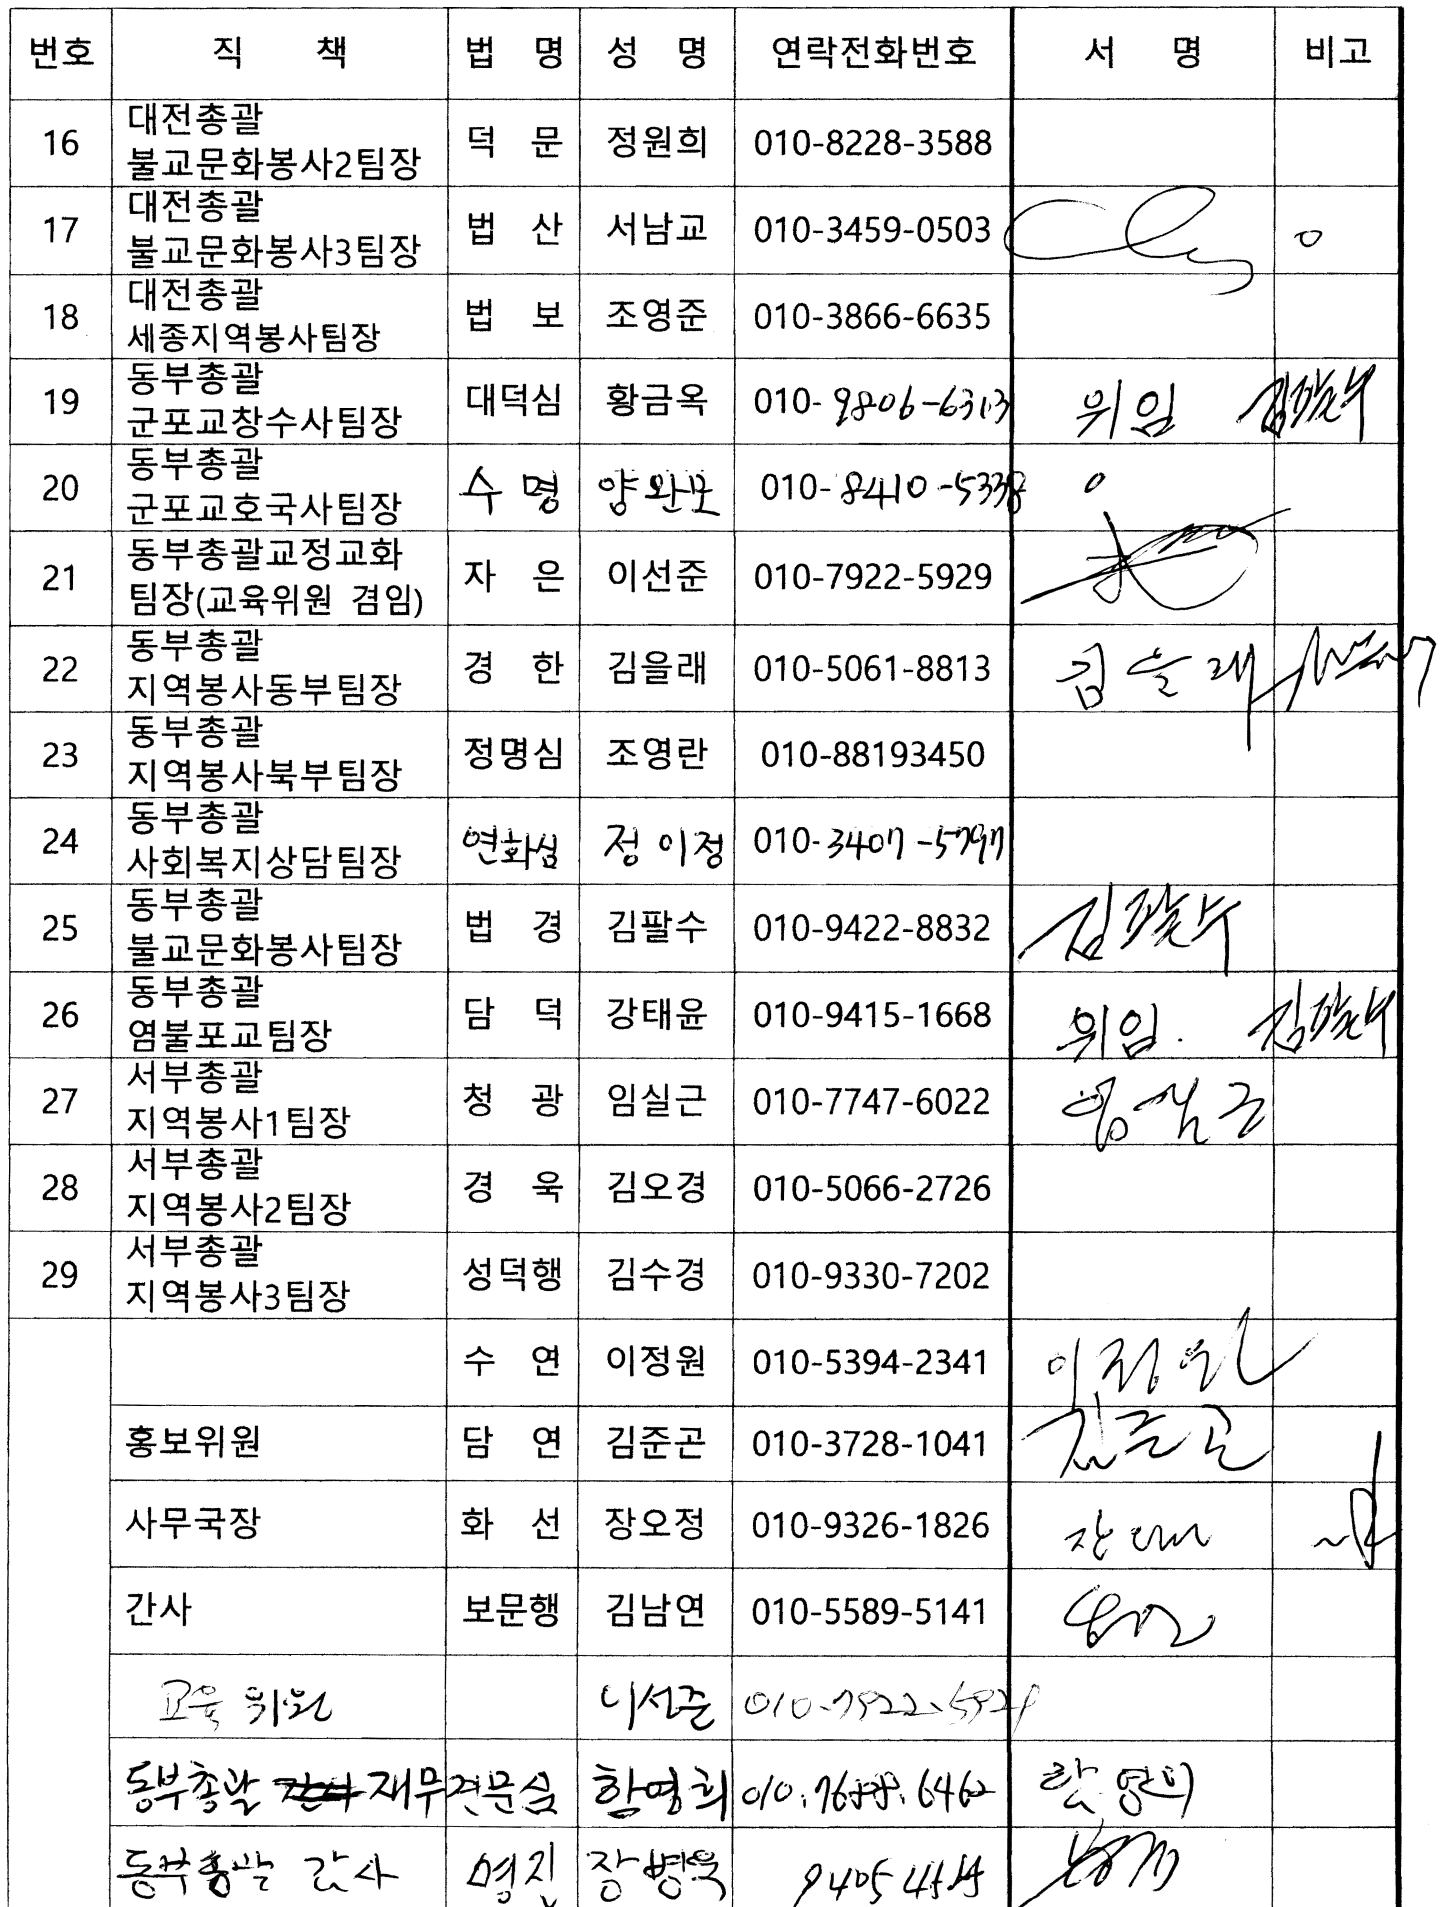 번호 직 책 법 명 성 명 연락전화번호 서 명 비고
16 대전총괄 불교문화봉사2팀장 덕 문 정원희 010-8228-3588
17 대전총괄 불교문화봉사3팀장 법 산 서남교 010-3459-0503
18 대전총괄 세종지역봉사팀장 법 보 조영준 010-3866-6635
19 동부총괄 군포교창수사팀장 대덕심 황금옥 010-9806-6313 위임 김팔수
20 동부총괄 군포교호국사팀장 수 명 양완모 010-8410-5338
21 동부총괄교정교화 팀장(교육위원 겸임) 자 은 이선준 010-7922-5929
22 동부총괄 지역봉사동부팀장 경 한 김을래 010-5061-8813 김을래
23 동부총괄 지역봉사북부팀장 정명심 조영란 010-88193450
24 동부총괄 사회복지상담팀장 연화심 정이정 010-3407-5797
25 동부총괄 불교문화봉사팀장 법 경 김팔수 010-9422-8832 김팔수
26 동부총괄 염불포교팀장 담 덕 강태윤 010-9415-1668 위임. 김팔수
27 서부총괄 지역봉사1팀장 청 광 임실근 010-7747-6022 임실근
28 서부총괄 지역봉사2팀장 경 욱 김오경 010-5066-2726
29 서부총괄 지역봉사3팀장 성덕행 김수경 010-9330-7202
수 연 이정원 010-5394-2341 이정원
홍보위원 담 연 김준곤 010-3728-1041 김준곤
사무국장 화 선 장오정 010-9326-1826
간사 보문행 김남연 010-5589-5141
교육위원 이선준 010-7922-5929
동부총괄 재무 함영희 함영희
동부총괄 간사 명진 장병욱 9405